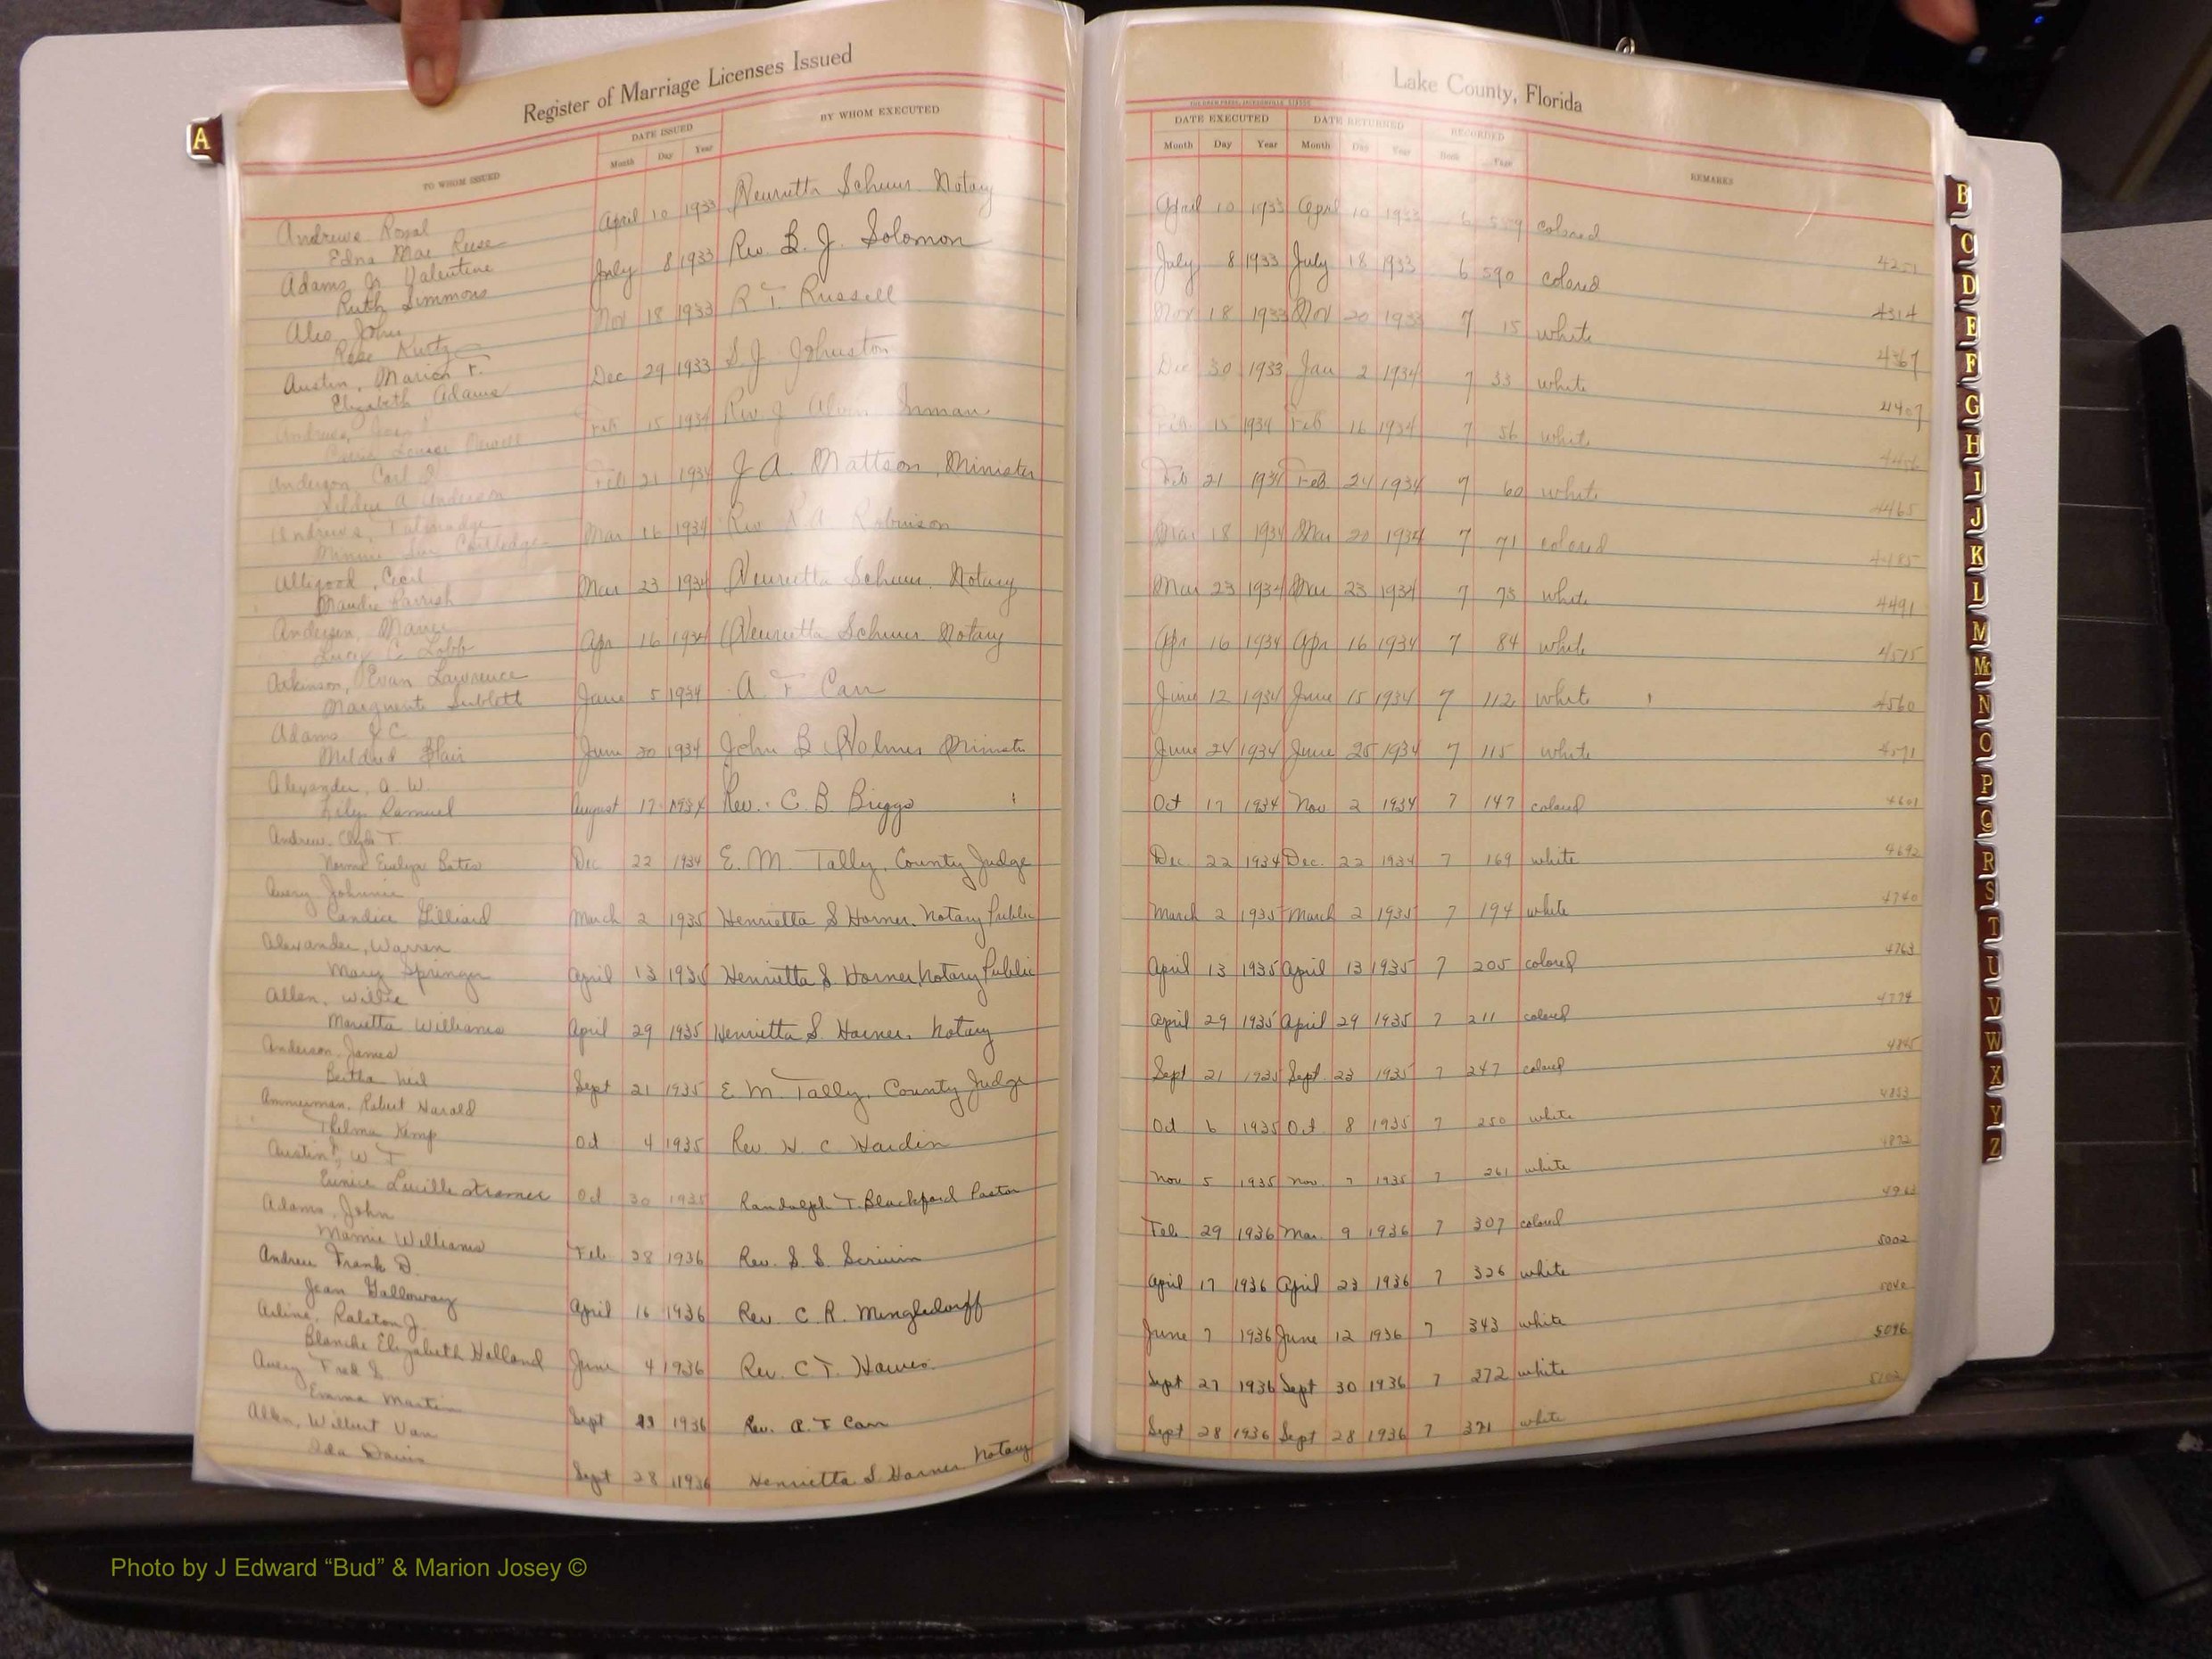 Register of Marriage Licenses Issued
Lake County, Florida
TO WHOM ISSUED
DATE ISSUED
Month Day Year
BY WHOM EXECUTED
DATE EXECUTED
Month Day Year
DATE RETURNED
Month Day Year
RECORDED
Book Page
REMARKS
A
Andrews Royal
Edna Mae Reese April 10 1933 Notary April 10 1933 April 10 1933 6 colored
Adams Jr Valentine 4251
Ruth Simmons July 8 1933 Rev. J. Solomon July 8 1933 July 18 1933 6 590 colored
John 4314
Rose Kurtz Nov 18 1933 R. T. Russell Nov 18 1933 Nov 20 1933 7 15 white
Austin, Marion F. 4367
Elizabeth Adams Dec 29 1933 S. J. Johnston Dec 30 1933 Jan 2 1934 7 33 white
Andrews, 4407
Louise Feb 15 1934 Rev. J Inman Feb 15 1934 Feb 16 1934 7 56 white
Anderson, Carl
A Anderson Feb 21 1934 J A. Mattson, Minister Feb 21 1934 Feb 24 1934 7 60 white
Andrews, Talmadge 4465
Minnie Cartledge Mar 16 1934 Rev Robinson Mar 18 1934 Mar 20 1934 7 71 colored
Alligood, Cecil 4485
Maudie Parrish Mar 23 1934 Notary Mar 23 1934 Mar 23 1934 7 73 white
Andersen, 4491
Lucy C. Apr 16 1934 Notary Apr 16 1934 Apr 16 1934 7 84 white
Atkinson, Evan Lawrence 4515
Marguerite Sublett June 5 1934 A. T. Carr June 12 1934 June 15 1934 7 112 white
Adams J C 4560
Mildred Blair June 20 1934 John B Holmes Minister June 24 1934 June 25 1934 7 115 white
Alexander, A. W. 4571
Lily Samuel August 17 1934 Rev. C. B. Briggs Oct 17 1934 Nov 2 1934 7 147 colored
Andrew, Clyde T. 4601
Norma Evelyn Bates Dec 22 1934 E. M. Tally, County Judge Dec. 22 1934 Dec. 22 1934 7 169 white
Avery Johnnie 4692
Candice Gilliard March 2 1935 Henrietta S Horner, Notary Public March 2 1935 March 2 1935 7 194 white
Alexander, Warren 4740
Mary Springer April 13 1935 Henrietta S. Horner Notary Public April 13 1935 April 13 1935 7 205 colored
Allen, Willie 4763
Marietta Williams April 29 1935 Henrietta S. Horner, Notary April 29 1935 April 29 1935 7 211 colored
Anderson, James 4774
Bertha Neil Sept 21 1935 E. M. Tally, County Judge Sept 21 1935 Sept. 23 1935 7 247 colored
Ammerman, Robert Harold 4845
Thelma Kemp Oct 4 1935 Rev. H. C Hardin Oct 6 1935 Oct. 8 1935 7 250 white
Austin, W T 4853
Eunice Lucille Oct 30 1935 Randolph T. Blackford Pastor Nov 5 1935 Nov. 7 1935 7 261 white
Adams, John 4872
Mamie Williams Feb 28 1936 Rev. S. S. Feb 29 1936 Mar. 9 1936 7 307 colored
Andrew Frank D.
Jean Galloway April 16 1936 Rev. C. R. Mingledorff April 17 1936 April 23 1936 7 326 white
Arline, Ralston J. 5002
Blanche Elizabeth Holland June 4 1936 Rev. C T. Hawes June 7 1936 June 12 1936 7 343 white
Avery Fred S 5040
Emma Martin Sept 1936 Rev. A. T Carr Sept 27 1936 Sept 30 1936 7 372 white
Allen, Wilburt Van 5096
Ida Davis Sept 28 1936 Henrietta S Horner Notary Sept 28 1936 Sept 28 1936 7 371 white
5102
B
C
D
E
F
G
H
I
J
K
L
M
Mc
N
O
P
Q
R
S
T
U
V
W
X
Y
Z
Photo by J Edward “Bud” & Marion Josey ©